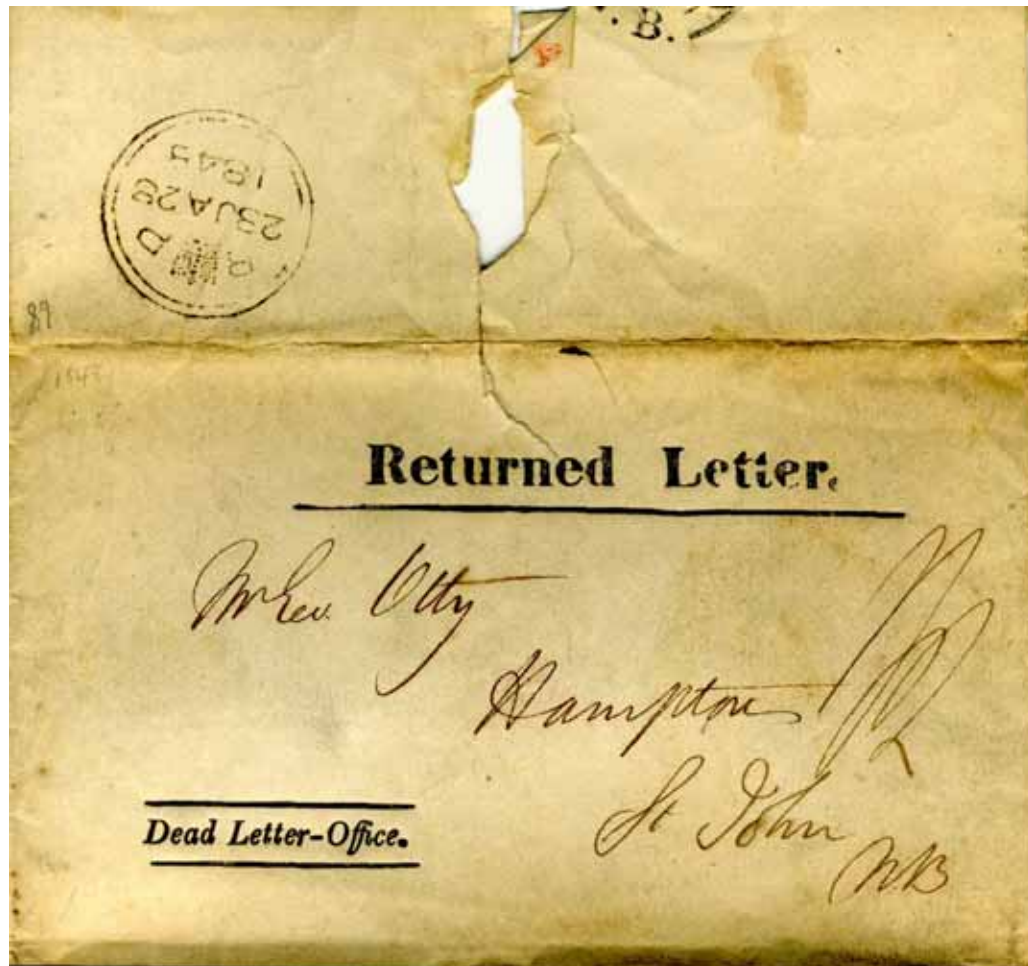 . B.
1845
28JA28
89
Returned Letter.
Mr Geo. Otty
Hampton
St John
NB
Dead Letter-Office.